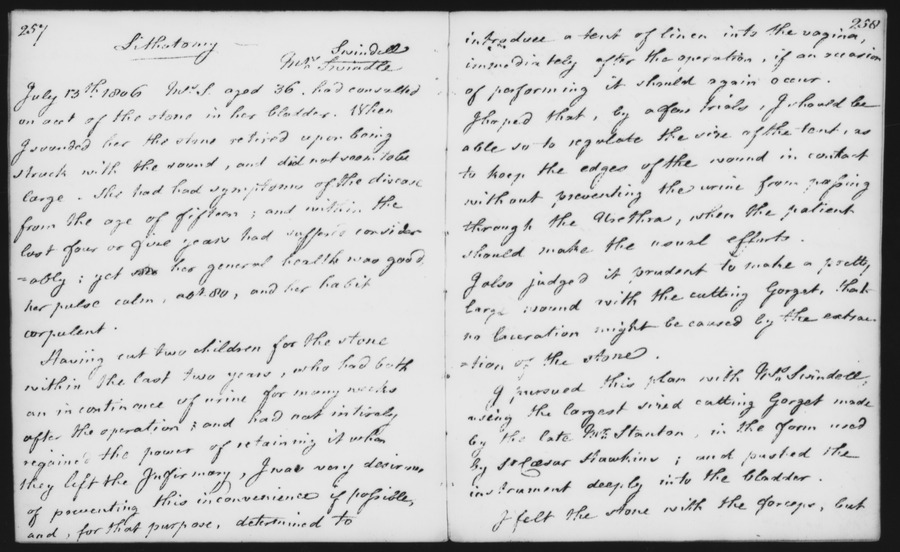 257
Lithotomy —
Swindell
Mrs. Swindle
July 13th. 1806 Mrs. S. aged 36. had consulted
on acct of the stone in her bladder. When
I sounded her the stone retired upon being
struck with the sound, and did not seem to be
large. She had had symptoms of the disease
from the age of fifteen; and within the
last four or five years had suffer'd consider
=ably; yet her general health was good
her pulse calm, abt. 80, and her habit
corpulent.
Having cut two children for the stone
within the last two years, who had both
an incontinence of urine for many weeks
after the operation; and had not intirely
regained the power of retaining it when
they left the Infirmary, I was very desirous
of preventing this inconvenience if possible,
and, for that purpose, determined to
258
introduce a tent of linen into the vagina,
immediately after the operation, if an occasion
of performing it should again occur.
I hoped that, by a few trials, I should be
able so to regulate the size of the tent, as
to keep the edges of the wound in contact
without preventing the urine from passing
through the Urethra, when the patient
should make the usual efforts.
I also judged it prudent to make a pretty
large wound with the cutting Gorget, that
no laceration might be caused by the extrac-
=tion of the stone.
I pursued this plan with Mrs. Swindell,
using the largest sized cutting Gorget made
by the late Mr. Stanton, in the form used
by Sr. Cæsar Hawkins; and pushed the
instrument deeply into the bladder.
I felt the stone with the forceps, but